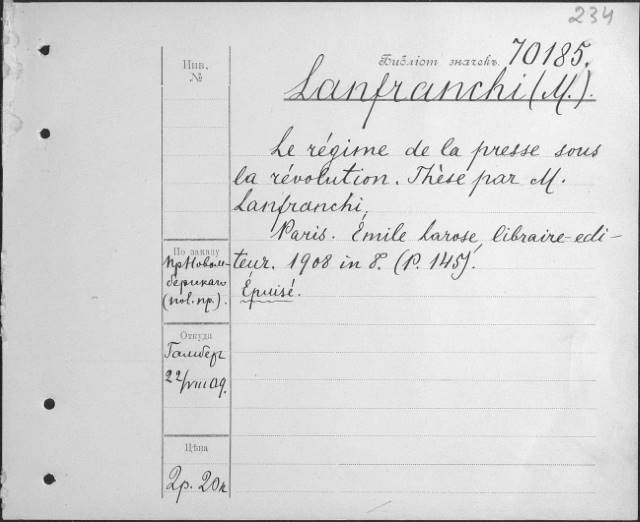 234
Инв.
№
Библіот. значекъ. 70185.
Lanfranchi (M.).
Le régime de la presse sous
la révolution. Thèse par M.
Lanfranchi,
Paris. Émile Larose, libraire-edi-
teur. 1908 in 8. (P. 145).
Épuisé.
По заказу
пр. Новом-
бергскаго
(pol. пр.).
Откуда
Гамбер
22/VIII 09.
Цѣна
2р. 20к